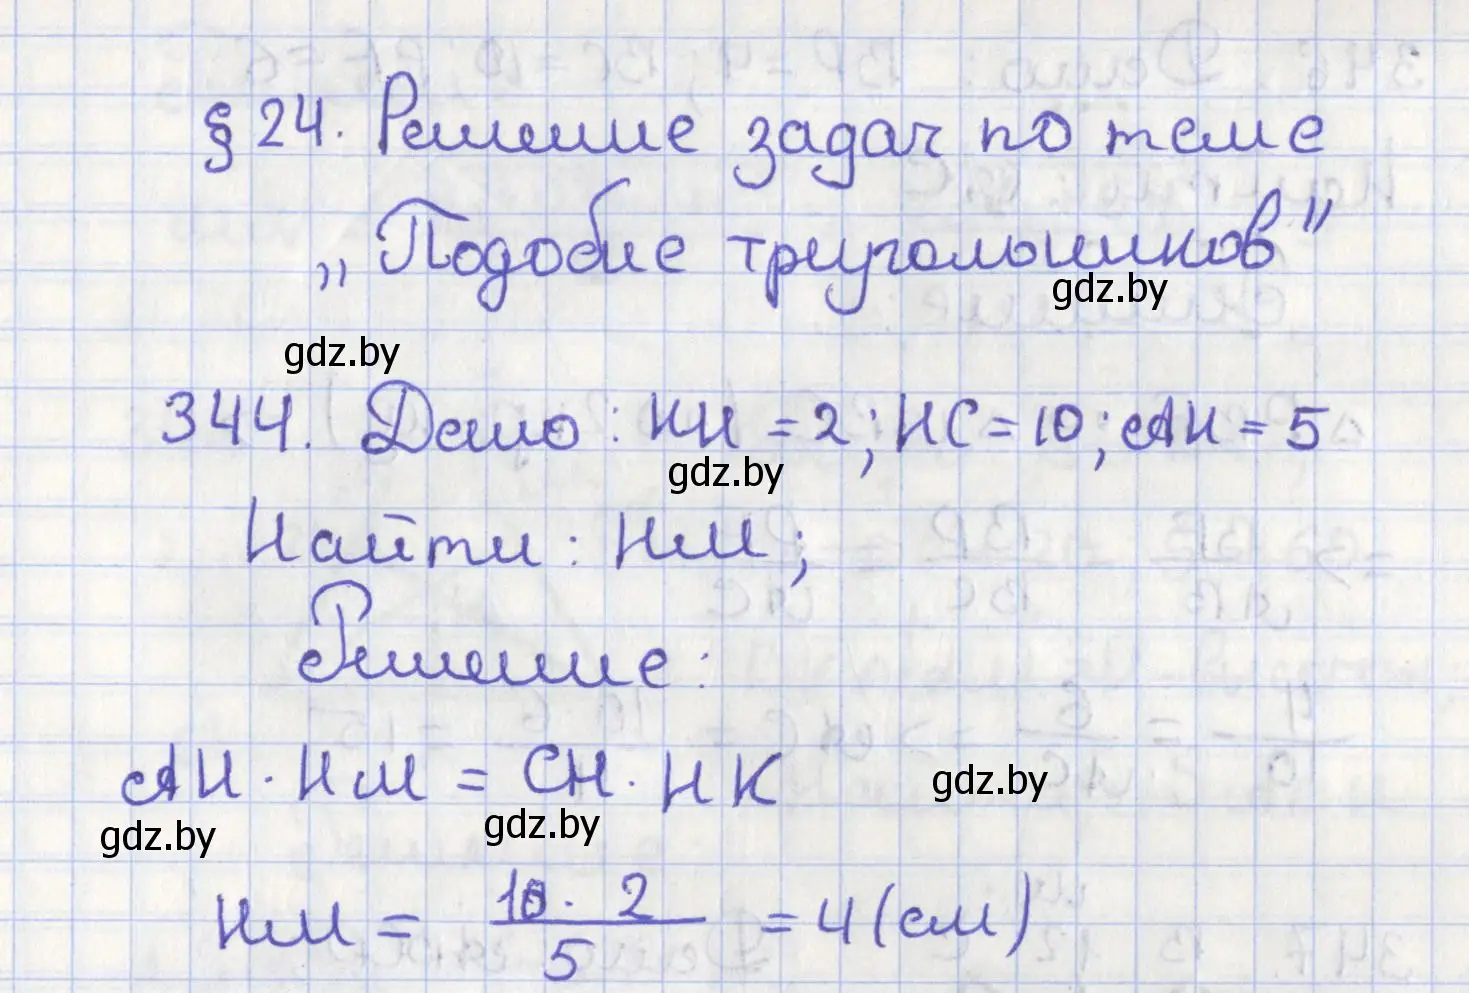 § 24. Решение задач по теме
„Подобие треугольников"
gdz.by
gdz.by
344. Дано: КН = 2; НС = 10; АН = 5
gdz.by
Найти: НМ;
Решение:
АН · НМ = СН · НК
gdz.by
gdz.by
gdz.by
НМ = 10 · 2 / 5 = 4 (см)